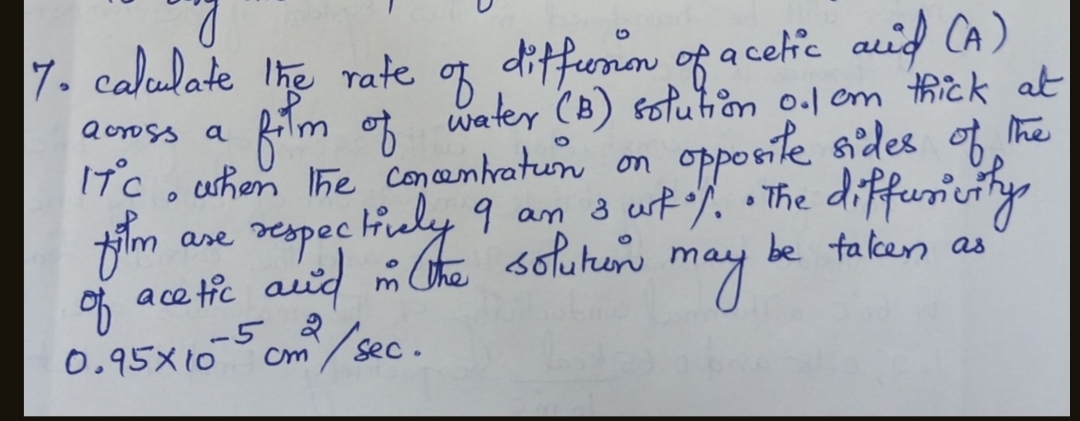 7. calculate the rate of diffusion of acetic acid (A)
across a film of water (B) solution 0.1 cm thick at
17°c. when the concentration on opposite sides of the
film are respectively 9 an 3 wt %. The diffusivity
of acetic acid in the solution may be taken as
0.95×10⁻⁵ cm²/sec.